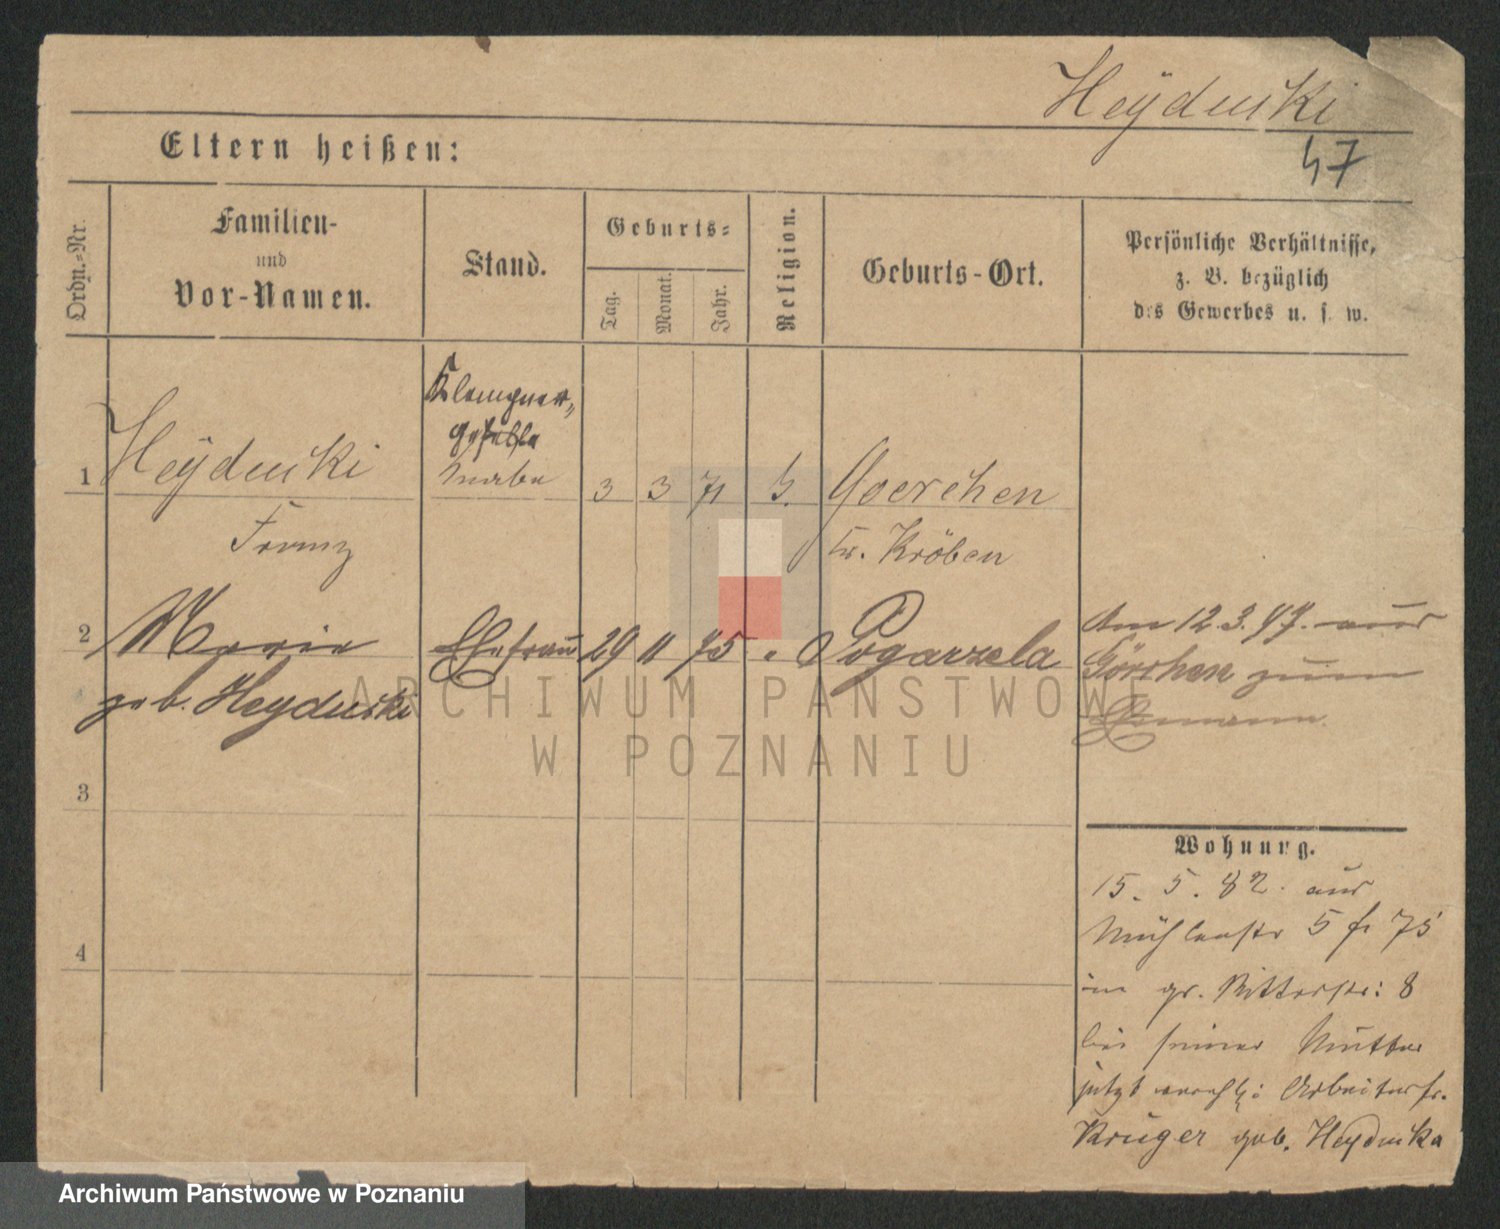 Heyducki
47
Eltern heißen:
Ordn.-Nr.
Familien-
und
Vor-Namen.
Stand.
Geburts-
Tag.
Monat.
Jahr.
Religion.
Geburts-Ort.
Persönliche Verhältnisse,
z. B. bezüglich
des Gewerbes u. s. w.
Klempner-
geselle
Knabe
1 Heyducki 3 3 71 k. Goerchen
Franz Kr. Kröben
2 Marie Ehefrau 29 11 75 " Pogarzela
geb. Heyducki
Am 12.3.97. aus
Görchen zum
Ehemann.
3
4
Wohnung.
15. 5. 82. aus
Mühlenstr 5 fr 75
in gr. Ritterstr: 8
bei seiner Mutter
jetzt verehl: Arbeiterfr.
Krüger geb. Heyducka
ARCHIWUM PAŃSTWOWE
W POZNANIU
Archiwum Państwowe w Poznaniu